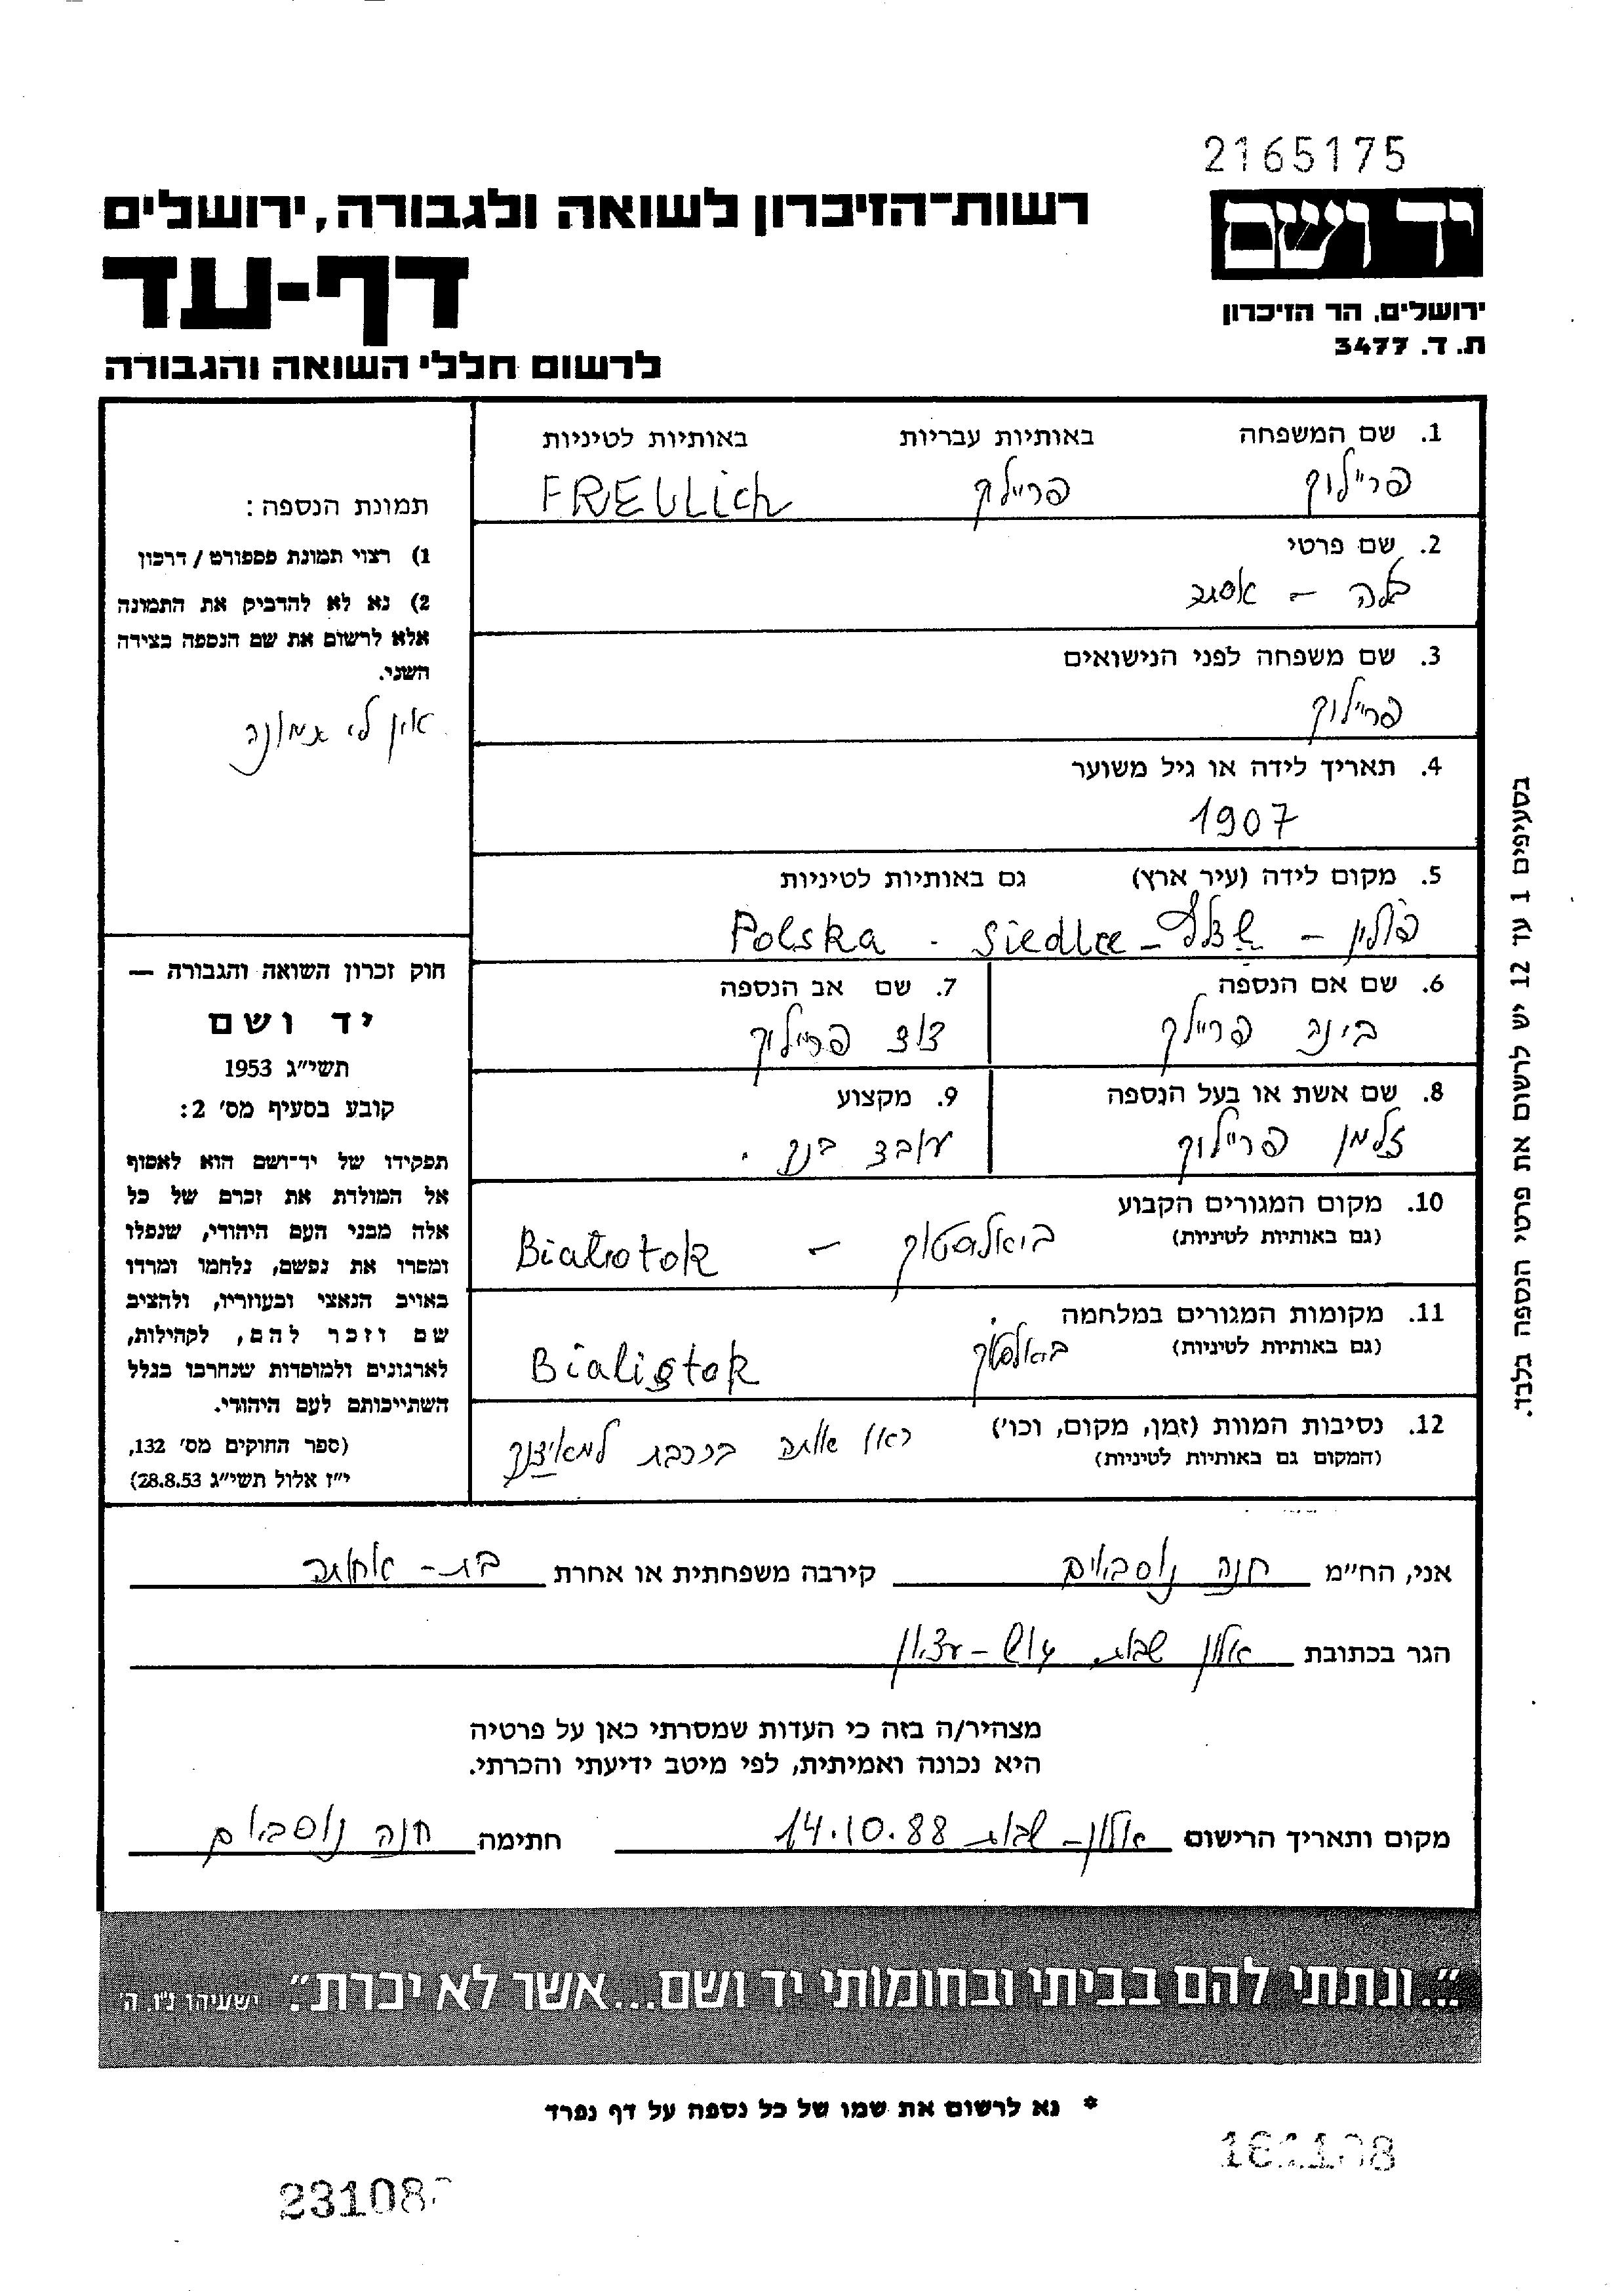 2165175
יד ושם
ירושלים, הר הזיכרון
ת. ד. 3477
רשות־הזיכרון לשואה ולגבורה, ירושלים
דף-עד
לרשום חללי השואה והגבורה
1. שם המשפחה באותיות עבריות באותיות לטיניות
פריילוך פריילך FREULich
2. שם פרטי
בלה - אסתר
3. שם משפחה לפני הנישואים
פריילוך
4. תאריך לידה או גיל משוער
1907
5. מקום לידה (עיר ארץ) גם באותיות לטיניות
פולין - שדלץ - Siedlce - Polska
6. שם אם הנספה 7. שם אב הנספה
בינה פריילך דוד פריילוך
8. שם אשת או בעל הנספה 9. מקצוע
זלמן פריילוך עובד בנק.
10. מקום המגורים הקבוע
(גם באותיות לטיניות)
ביאלסטוק - Bialrotok
11. מקומות המגורים במלחמה
(גם באותיות לטיניות)
ביאלסטוק Bialistok
12. נסיבות המוות (זמן, מקום, וכו')
(המקום גם באותיות לטיניות)
ראו אותה ברכבת
תמונת הנספה:
1) רצוי תמונת פספורט / דרכון
2) נא לא להדביק את התמונה
אלא לרשום את שם הנספה בצידה
השני.
אין לי תמונה
חוק זכרון השואה והגבורה —
יד ושם
תשי״ג 1953
קובע בסעיף מס' 2:
תפקידו של יד־ושם הוא לאסוף
אל המולדת את זכרם של כל
אלה מבני העם היהודי, שנפלו
ומסרו את נפשם, נלחמו ומרדו
באויב הנאצי ובעוזריו, ולהציב
שם וזכר להם, לקהילות,
לארגונים ולמוסדות שנחרבו בגלל
השתייכותם לעם היהודי.
(ספר החוקים מס' 132,
י״ז אלול תשי״ג 28.8.53)
בסעיפים 1 עד 12 יש לרשום את פרטי הנספה בלבד.
אני, הח״מ חנה נוסבוים קירבה משפחתית או אחרת בת - אחותה
הגר בכתובת אלון שבות גוש - עציון
מצהיר/ה בזה כי העדות שמסרתי כאן על פרטיה
היא נכונה ואמיתית, לפי מיטב ידיעתי והכרתי.
מקום ותאריך הרישום אלון - שבות 14.10.88 חתימה חנה נוסבוים
״...ונתתי להם בביתי ובחומותי יד ושם...אשר לא יכרת״. ישעיהו נ״ו, ה'
* נא לרשום את שמו של כל נספה על דף נפרד